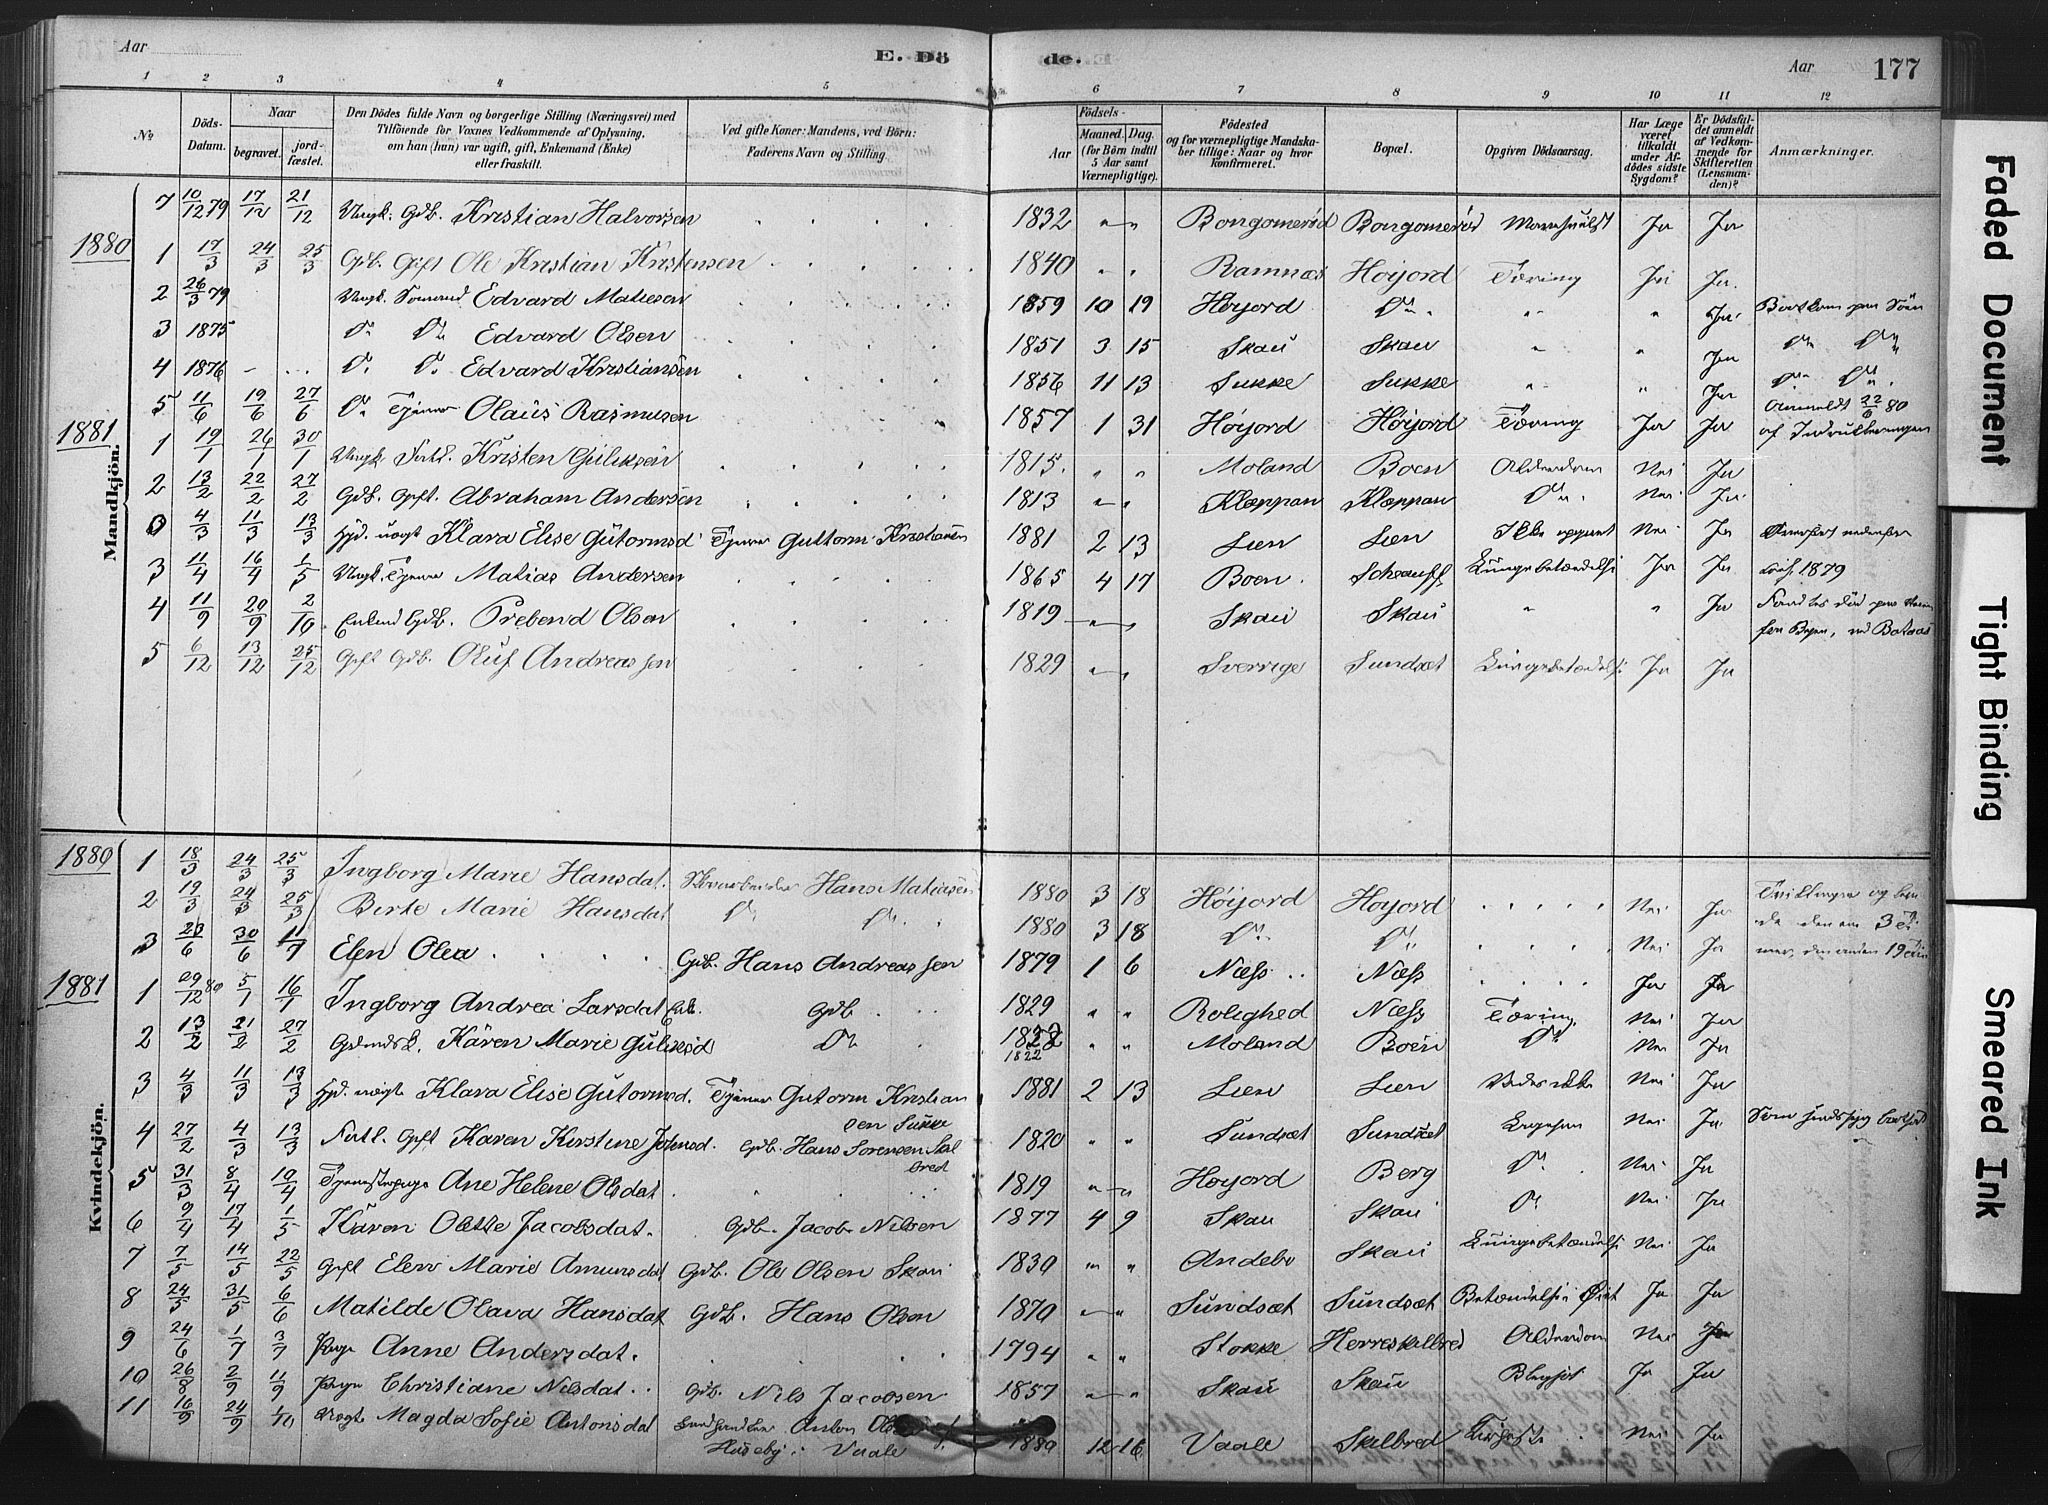 Aar
E. Dö
de.
Aar
177
1 2 3 4 5 6 7 8 9 10 11 12
No
Döds-Datum.
Naar
begravet.
jordfæstet.
Den Dödes fulde Navn og borgerlige Stilling (Næringsvei) med
Tilföiende for Voxnes Vedkommende af Oplysning,
om han (hun) var ugift, gift, Enkemand (Enke)
eller fraskilt.
Ved gifte Koner: Mandens, ved Börn:
Faderens Navn og Stilling.
Födsels-
Aar
Maaned. Dag.
(for Börn indtil
5 Aar samt
Værnepligtige).
Födested
og for værnepligtige Mandska-
ber tillige: Naar og hvor
konfirmeret.
Bopæl.
Opgiven Dödsaarsag.
Har Læge
været
tilkaldt
under Af-
dödes sidste
Sygdom?
Er Dödsfal-
det anmeldt
af Vedkom-
mende for
Skifteretten
(Lensman-
den)?
Anmærkninger.
Mandkjön.
7 10/12 79 17/12 21/12 Ungk. Gdb. Kristian Halvorsen 1832 " " Bongomeröd Bongomeröd Ja Ja
1880
1 17/3 24/3 25/3 Gdb. Gift Ole Kristian Kristensen 1840 " " Ramnæs Höijord Tæring Ja Ja
2 26/3 79 Ungk. Sömand Edvard Matiesen 1859 10 19 Höijord Do " " Ja Bortkom paa Söen
3 1875 Do Do Edvard Olsen 1851 3 15 Skau Skau " " Ja Do Do
4 1876 - Do Do Edvard Kristiansen 1856 11 13 Sukke Sukke " " Ja Do Do
5 11/6 19/6 27/6 Do Tjener Olaus Rasmusen 1857 1 31 Höijord Höijord Tæring Ja Ja Anmeldt 22/6 80
1881
1 19/1 26/1 30/1 Ungk. Fatl. Kristen Guliksen 1815 " " Moland Boen Alderdom Nei Ja
2 13/2 22/2 27/2 Gdb. Gift. Abraham Andersen 1813 " " Klæppan Klæppan Do Nei Ja
0 4/3 11/3 13/3 Hjd. uægt Klara Elise Gutormsd Tjener Guttorm Kristiansen 1881 2 13 Lien Lien Ikke opgivet Nei Ja
3 11/4 16/4 1/5 Ungk. Tjener Matias Andersen 1865 4 17 Boen Lungebetændelse Ja Ja 1879
4 11/9 20/9 2/10 Enkemd Gdb. Prebend Olsen 1819 " " Skau Skau " " Ja
5 6/12 13/12 25/12 Gift Gdb. Oluf Andreassen 1829 " " Sverrige Sundset Lungebetændelse Ja Ja
Kvindekjön.
1880
1 18/3 24/3 25/3 Ingborg Marie Hansdat. Hans Matiasen 1880 3 18 Höijord Höijord Nei Ja Tvillinger
2 19/3 24/3 25/3 Berte Marie Hansdat Do Do 1880 3 18 Do Do Nei Ja
3 23/6 30/6 11/7 Elen Olea Gdb. Hans Andreassen 1879 1 6 Næss Næss Ja Ja
1881
1 29/12 80 5/1 16/1 Ingborg Andrea Larsdat Enk. Gdb 1829 " " Rolighed Næss Tæring Nei Ja
2 13/2 21/2 27/2 Gdmdsk. Karen Marie Guliksd Do 1822 " " Moland Boen Do Nei Ja
3 4/3 11/3 13/3 Hjd. uægte Klara Elise Gutormsd. Tjener Gutorm Kristian
sen Sukke 1881 2 13 Lien Lien Vides ikke Nei Ja
4 27/2 4/3 13/3 Fatl. Gift Karen Kirstine Johnsd. Gdb. Hans Sorensen Skal
bred 1820 " " Sundset Sundset Nei Ja
5 31/3 8/4 10/4 Tjenestepige Ane Helene Olsdat. 1819 " " Höijord Berg Do Nei Ja
6 9/4 17/4 1/5 Karen Olette Jacobsdat. Gdb. Jacob Nilsen 1877 4 9 Skau Skau Do Nei Ja
7 7/5 14/5 22/5 Gift Elen Marie Amunsdat Gdb. Ole Olsen Skau 1830 " " Andebo Skau Lungebetændelse Nei Ja
8 24/5 31/5 6/6 Matilde Olava Hansdat Gdb. Hans Olsen 1870 " " Sundset Sundset Ja Ja
9 24/6 1/7 3/7 Pige Anne Andersdat. 1794 " " Stokke Herreskilbred Alderdom Nei Ja
10 26/8 2/9 11/9 Pige Christiane Nilsdat. Gdb. Nils Jacobsen 1857 " " Skau Skau Ja Ja
11 16/9 24/9 1/10 Uægte Magda Sofie Antonsdat Landhandler Anton
Huseby i Vaale 1880 12 16 Vaale Skilbred Nei Ja
Faded Document
Tight Binding
Smeared Ink